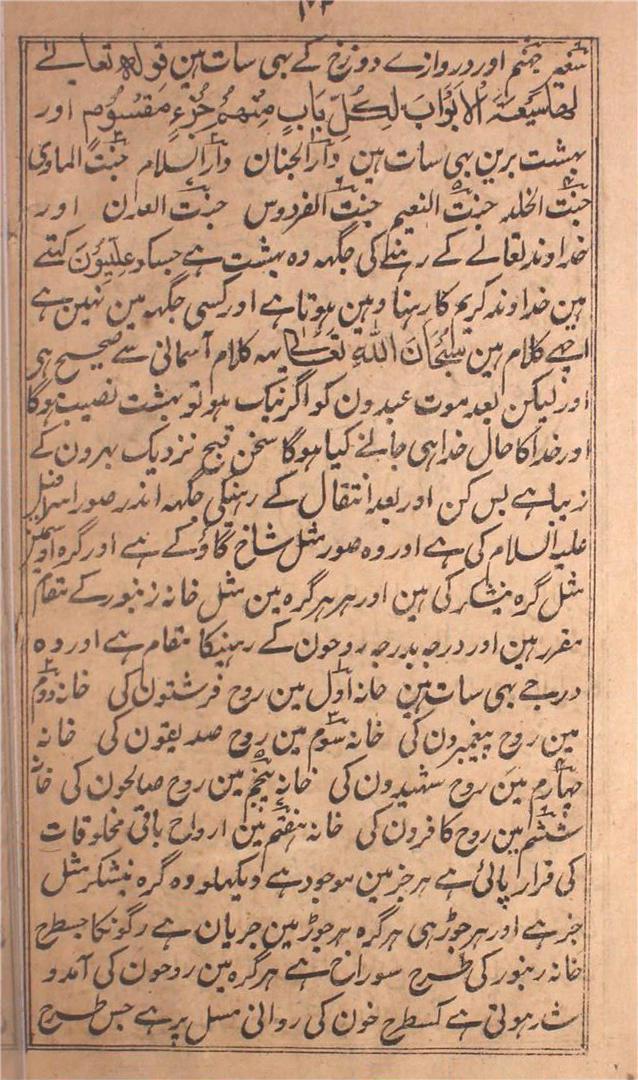 سعیر جہنم اور دروازے دوزخ کے بہی سات ہین قولہ تعالےٰ
لھا سبعۃ الابواب لکل باب منھم جزء مقسوم اور
بہشت برین بہی سات ہین دارالجنان دارالسلام جنت الماوی
جنت الخلد جنت النعیم جنت الفردوس جنت العدن اور
خداوند تعالے کے رہنے کی جگہہ وہ بہشت ہے جسکو علیّون کہتے
ہین خداوند کریم کا رہنا وہین ہوتا ہے اور کسی جگہہ مین نہین ہے
اچہے کلام ہین سبحان اللہ تعالےٰ یہہ کلام آسمانی سے صحیح ہی
اور لیکن بعد موت عبدون کو اگر نیک ہو تو بہشت نصیب ہوگا
اور خدا کا حال خدا ہی جانے کیا ہوگا سخن قبیح نزدیک بہرون کے
زیبا ہے بس کن اور بعد انتقال کے رہنکی جگہہ اندر صور اسرافیل
علیہ السلام کی ہے اور وہ صور مثل شاخ گاؤ کے ہے اور گرہ اوسمین
مثل گرہ نیشکر کی ہین اور ہر ہر گرہ مین مثل خانہ زنبور کے مقام
مقرر ہین اور درجہ بدرجہ روحون کے رہینکا مقام ہے اور وہ
درجے بہی سات ہین خانہ اول مین روح فرشتون کی خانہ دوم
مین روح پیغمبرون کی خانہ سوم مین روح صدیقون کی خانہ
چہارم مین روح شہیدون کی خانہ پنجم مین روح صالحون کی خانہ
ششم مین روح کافرون کی خانہ ہفتم مین ارواح باقی مخلوقات
کی قرار پائی ہے ہر جز مین موجود ہے دیکہلو وہ گرہ نیشکر مثل
جز ہے اور ہر جوڑ ہی ہر گرہ ہر جوڑ مین جریان ہے رگونکا جسطرح
خانہ زنبور کی طرح سوراخ ہے ہر گرہ مین روحون کی آمد و
شد ہوتی ہے کسطرح خون کی روانی مسل پر ہے جس طرح